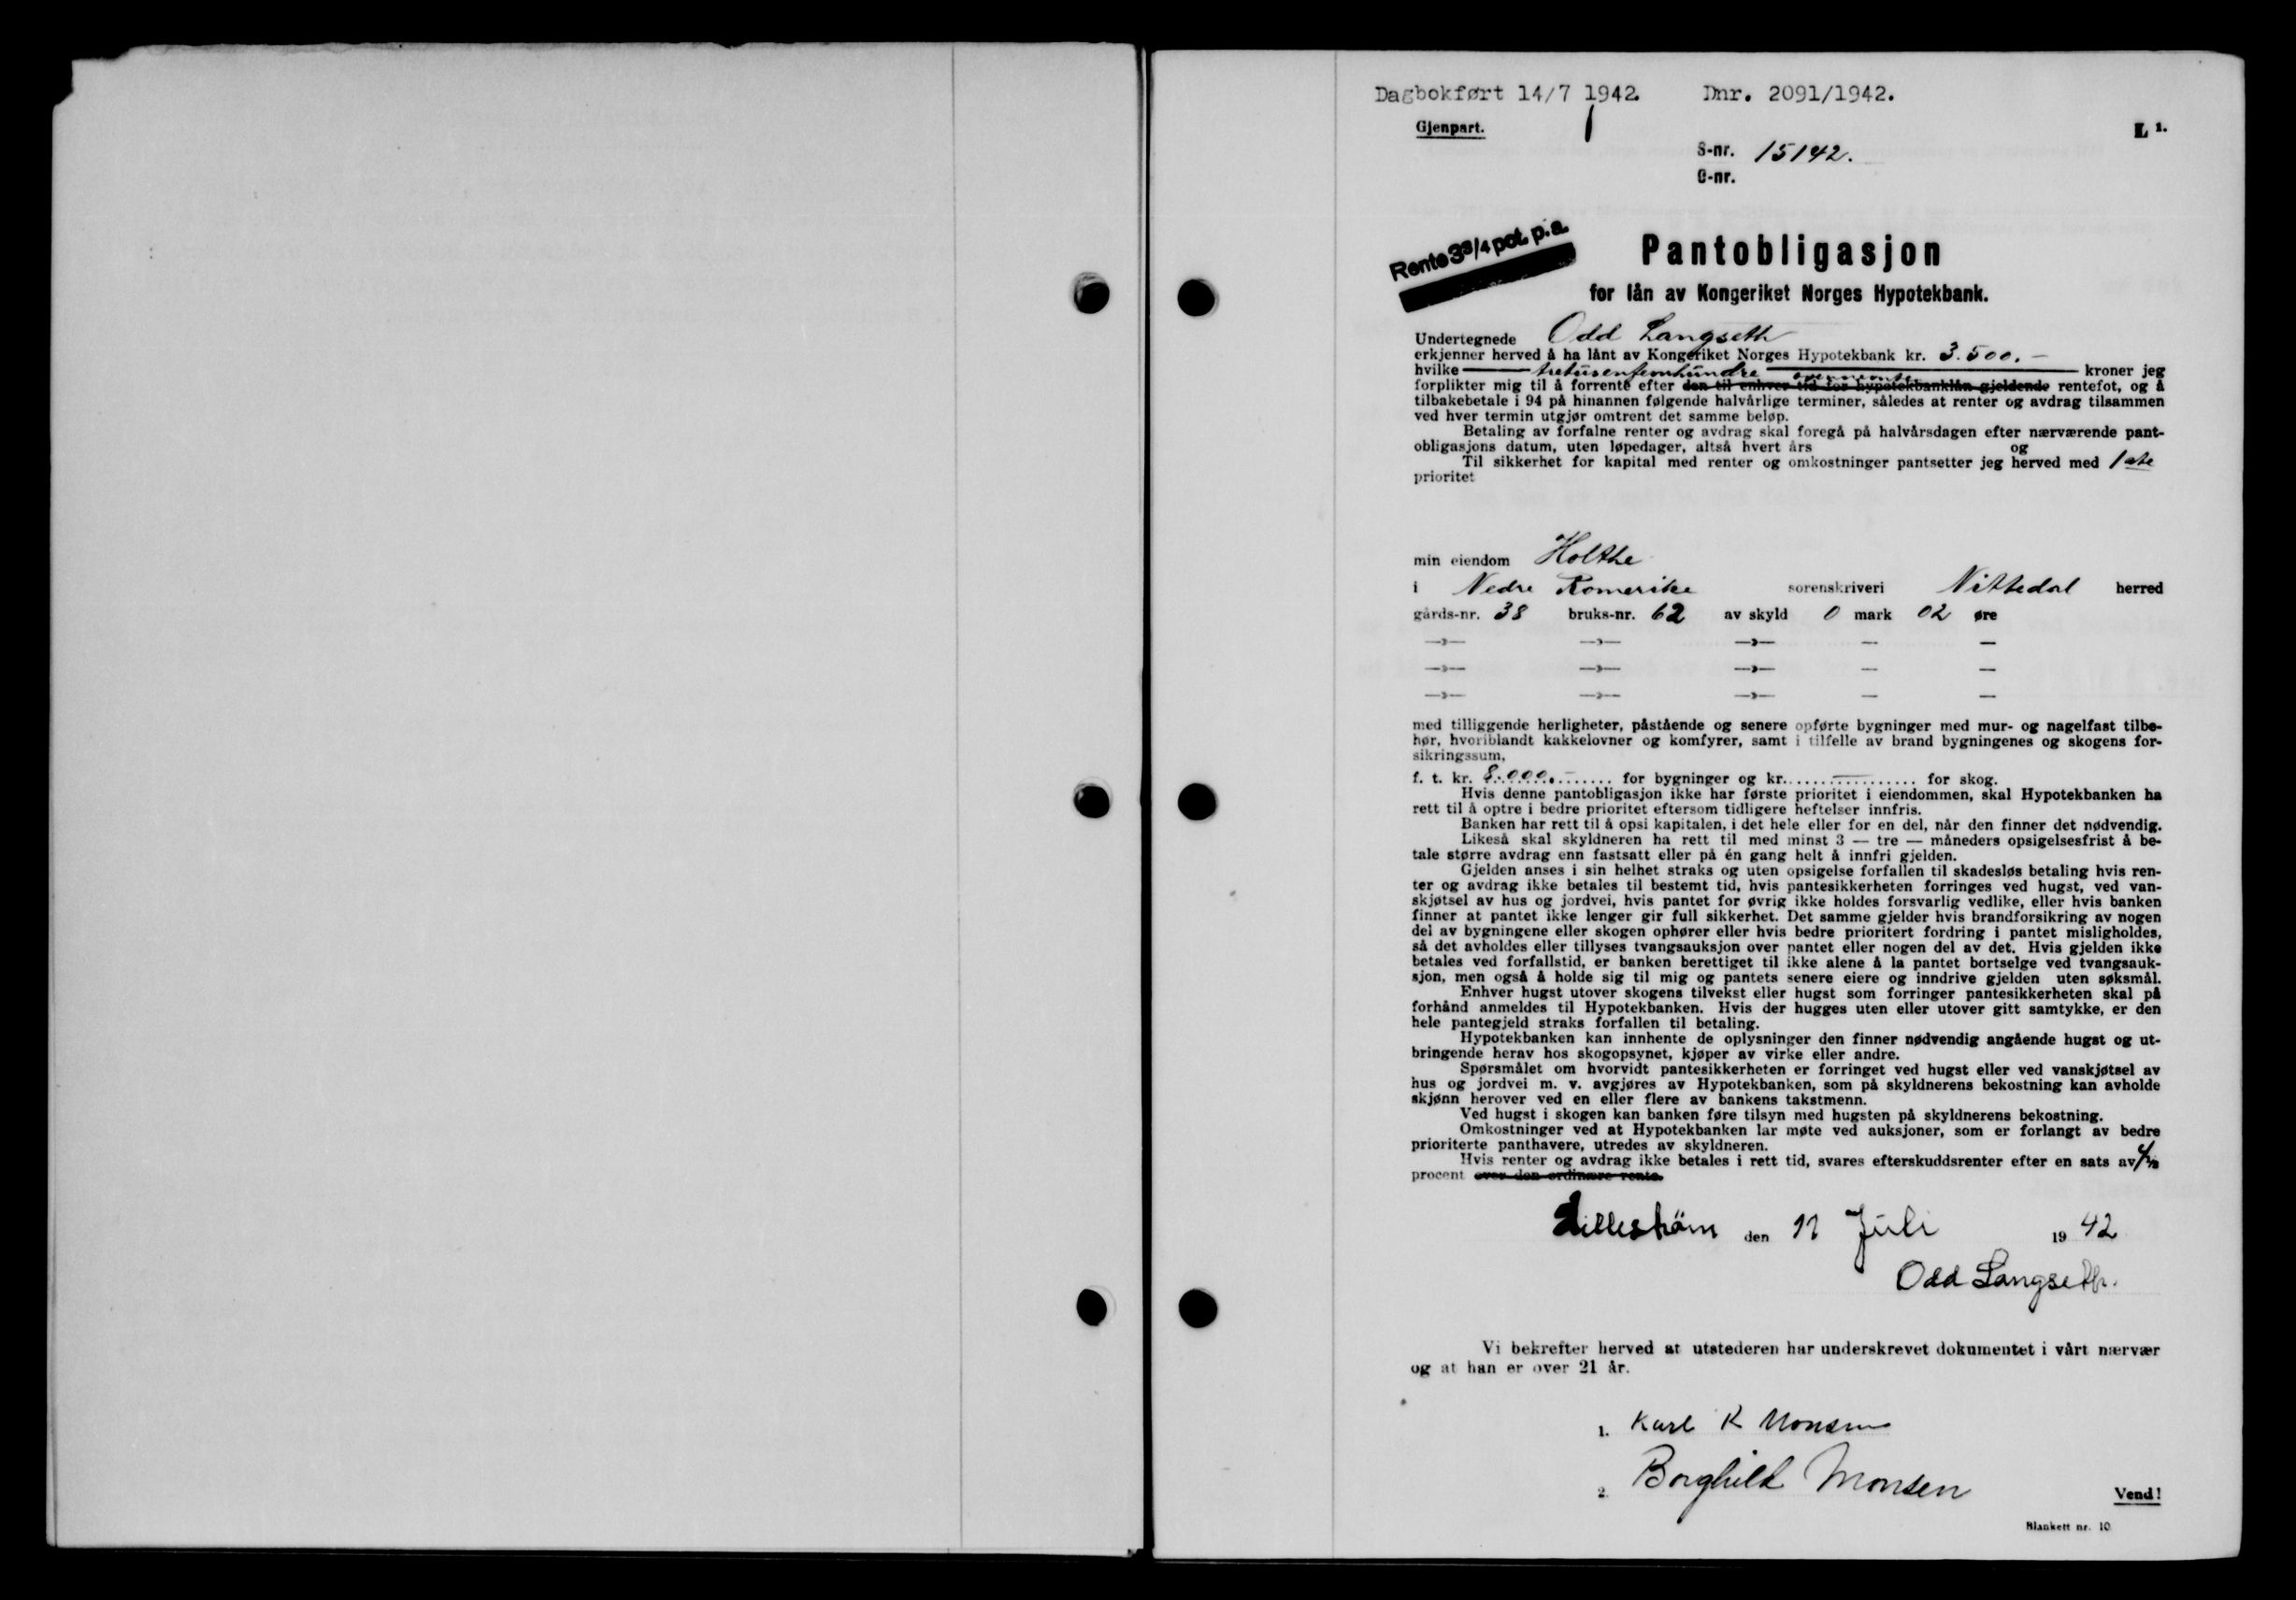 Dagbokført 14/7 1942. Dnr. 2091/1942.
Gjenpart. L 1.
S-nr. 15142.
G-nr.
Rente 3 3/4 pct. p.a.
Pantobligasjon
for lån av Kongeriket Norges Hypotekbank.
Undertegnede Odd Langseth
erkjenner herved å ha lånt av Kongeriket Norges Hypotekbank kr. 3.500.—
hvilke — tretusenfemhundre — kroner jeg
forplikter mig til å forrente efter den til enhver tid for hypotekbanklån gjeldende ovennevnte rentefot, og å
tilbakebetale i 94 på hinannen følgende halvårlige terminer, således at renter og avdrag tilsammen
ved hver termin utgjør omtrent det samme beløp.
Betaling av forfalne renter og avdrag skal foregå på halvårsdagen efter nærværende pant-
obligasjons datum, uten løpedager, altså hvert års og
Til sikkerhet for kapital med renter og omkostninger pantsetter jeg herved med 1ste
prioritet
min eiendom Holthe
i Nedre Romerike sorenskriveri Nittedal herred
gårds-nr. 38 bruks-nr. 62 av skyld 0 mark 02 øre
—»— —»— —»— — —
—»— —»— —»— — —
—»— —»— —»— — —
med tilliggende herligheter, påstående og senere opførte bygninger med mur- og nagelfast tilbe-
hør, hvoriblandt kakkelovner og komfyrer, samt i tilfelle av brand bygningenes og skogens for-
sikringssum,
f. t. kr. 8.000.— for bygninger og kr. — for skog.
Hvis denne pantobligasjon ikke har første prioritet i eiendommen, skal Hypotekbanken ha
rett til å optre i bedre prioritet eftersom tidligere heftelser innfris.
Banken har rett til å opsi kapitalen, i det hele eller for en del, når den finner det nødvendig.
Likeså skal skyldneren ha rett til med minst 3 — tre — måneders opsigelsesfrist å be-
tale større avdrag enn fastsatt eller på én gang helt å innfri gjelden.
Gjelden anses i sin helhet straks og uten opsigelse forfallen til skadesløs betaling hvis ren-
ter og avdrag ikke betales til bestemt tid, hvis pantesikkerheten forringes ved hugst, ved van-
skjøtsel av hus og jordvei, hvis pantet for øvrig ikke holdes forsvarlig vedlike, eller hvis banken
finner at pantet ikke lenger gir full sikkerhet. Det samme gjelder hvis brandforsikring av nogen
del av bygningene eller skogen ophører eller hvis bedre prioritert fordring i pantet misligholdes,
så det avholdes eller tillyses tvangsauksjon over pantet eller nogen del av det. Hvis gjelden ikke
betales ved forfallstid, er banken berettiget til ikke alene å la pantet bortselge ved tvangsauk-
sjon, men også å holde sig til mig og pantets senere eiere og inndrive gjelden uten søksmål.
Enhver hugst utover skogens tilvekst eller hugst som forringer pantesikkerheten skal på
forhånd anmeldes til Hypotekbanken. Hvis der hugges uten eller utover gitt samtykke, er den
hele pantegjeld straks forfallen til betaling.
Hypotekbanken kan innhente de oplysninger den finner nødvendig angående hugst og ut-
bringende herav hos skogopsynet, kjøper av virke eller andre.
Spørsmålet om hvorvidt pantesikkerheten er forringet ved hugst eller ved vanskjøtsel av
hus og jordvei m. v. avgjøres av Hypotekbanken, som på skyldnerens bekostning kan avholde
skjønn herover ved en eller flere av bankens takstmenn.
Ved hugst i skogen kan banken føre tilsyn med hugsten på skyldnerens bekostning.
Omkostninger ved at Hypotekbanken lar møte ved auksjoner, som er forlangt av bedre
prioriterte panthavere, utredes av skyldneren.
Hvis renter og avdrag ikke betales i rett tid, svares efterskuddsrenter efter en sats av 4 1/2
procent over den ordinære rente.
Lilleström den 11 Juli 1942
Odd Langseth.
Vi bekrefter herved at utstederen har underskrevet dokumentet i vårt nærvær
og at han er over 21 år.
1. Karl K Monsen
2. Borghild Monsen
Vend!
Blankett nr. 10